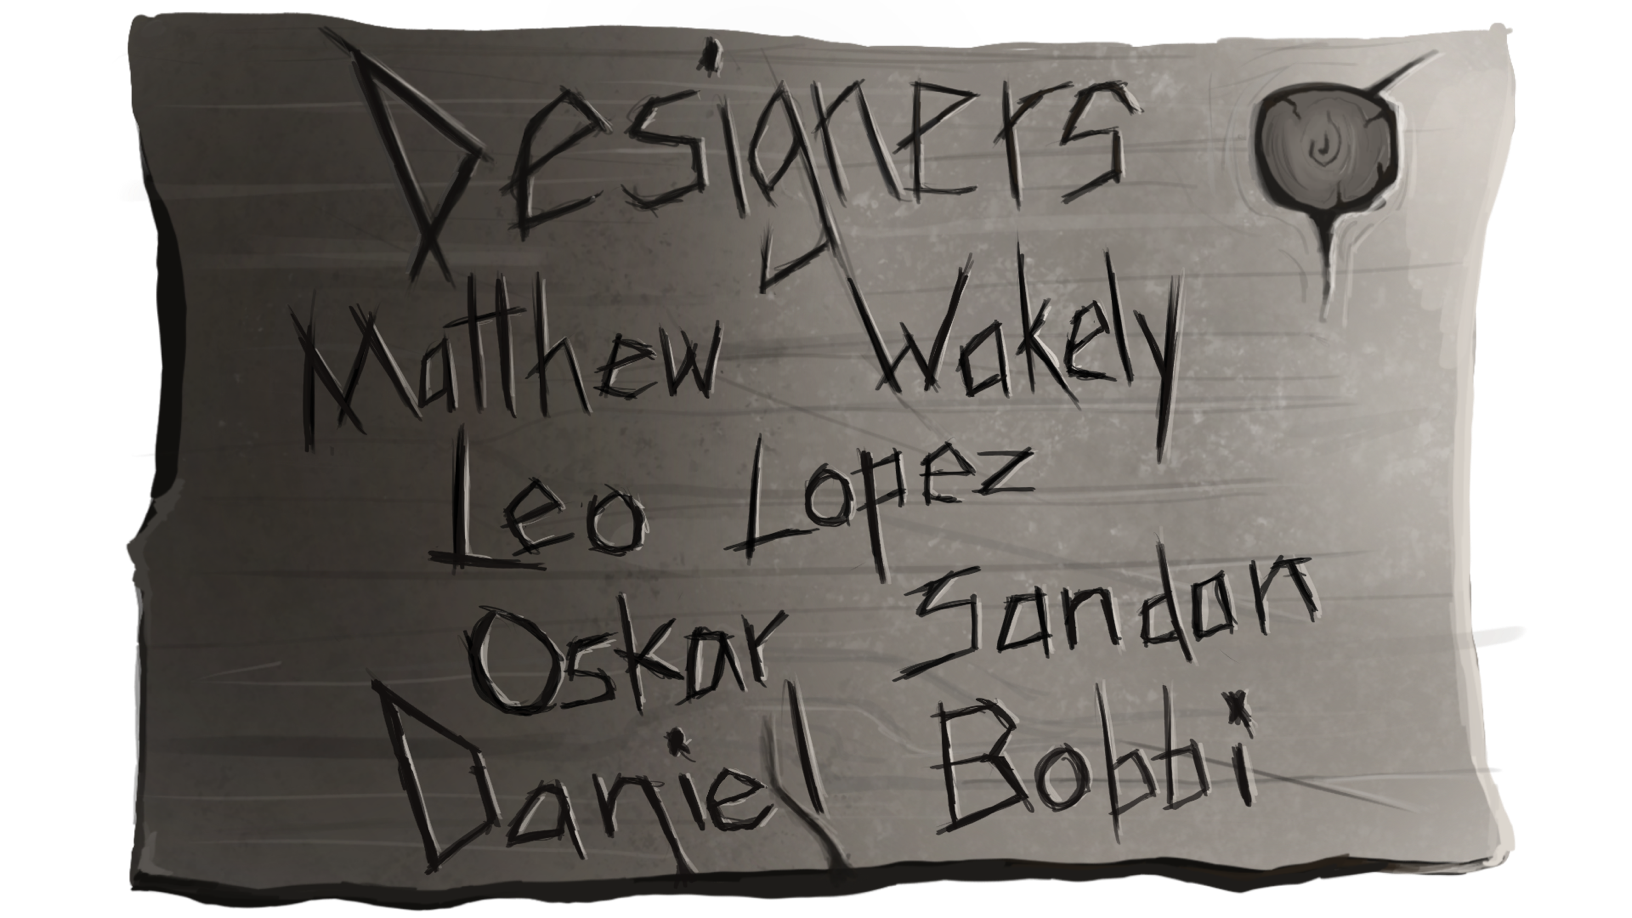 Designers
Matthew Wakely
Leo Lopez
Oskar Sandan
Daniel Bobbi